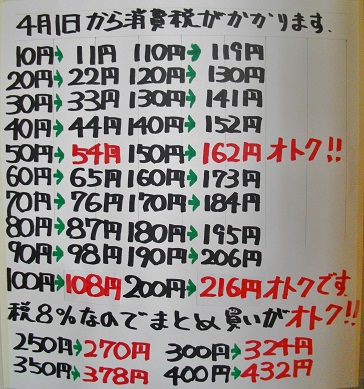 4月1日から消費税がかかります.
10円→11円 110円→119円
20円→22円 120円→130円
30円→33円 130円→141円
40円→44円 140円→152円
50円→54円 150円→162円 オトク!!
60円→65円 160円→173円
70円→76円 170円→184円
80円→87円 180円→195円
90円→98円 190円→206円
100円→108円 200円→216円 オトクです
税8%なのでまとめ買いがオトク!!
250円→270円 300円→324円
350円→378円 400円→432円